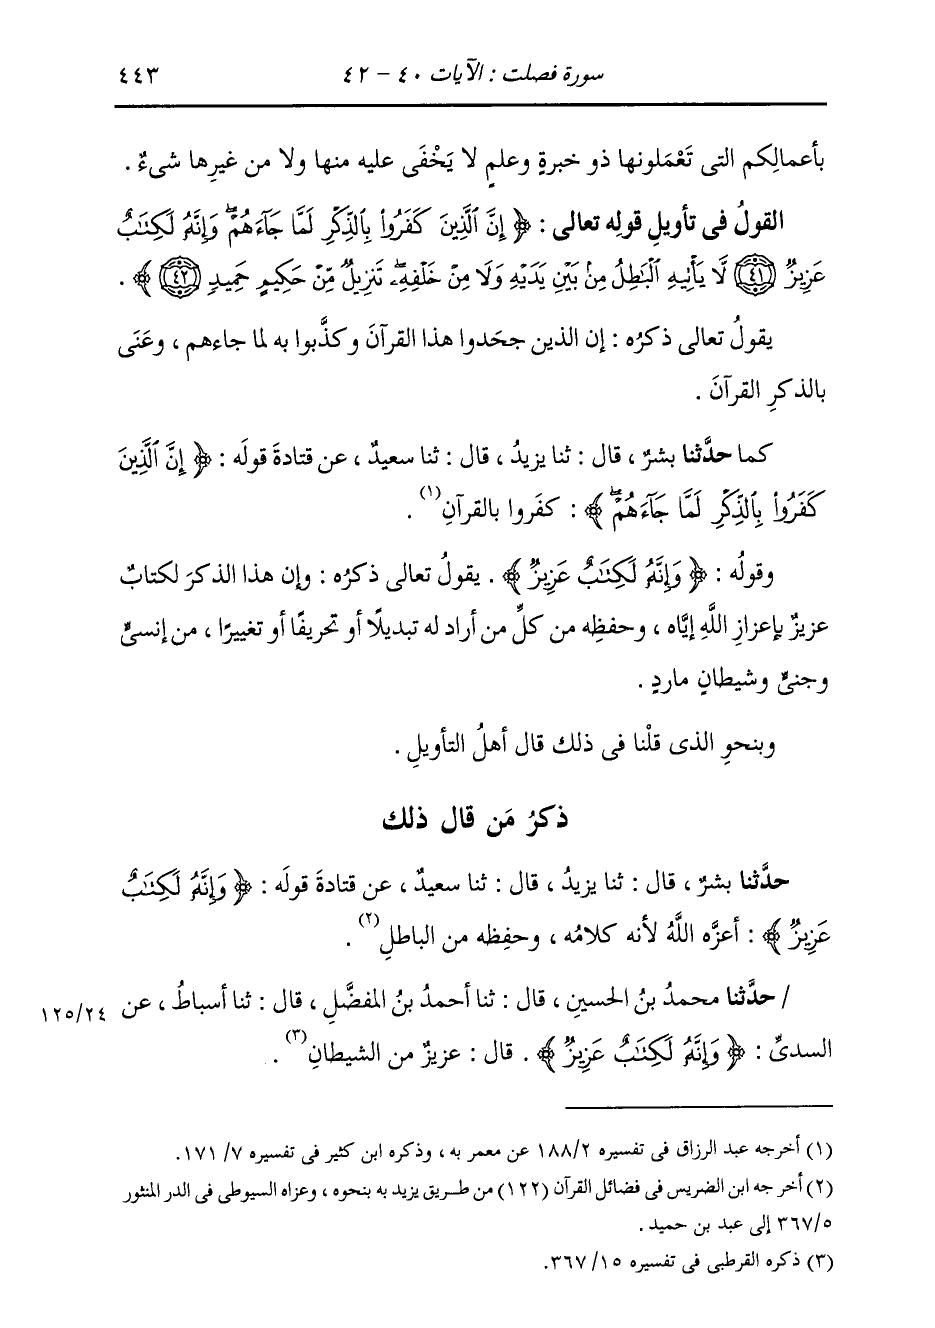 سورة فصلت : الآيات ٤٠ - ٤٢ ٤٤٣
بأعمالِكم التى تَعْمَلونها ذو خبرةٍ وعلمٍ لا يَخْفَى عليه منها ولا من غيرِها شىءٌ .
القولُ فى تأويلِ قولِه تعالى : ﴿ إِنَّ ٱلَّذِينَ كَفَرُوا۟ بِٱلذِّكْرِ لَمَّا جَآءَهُمْ ۖ وَإِنَّهُۥ لَكِتَٰبٌ
عَزِيزٌ ﴿٤١﴾ لَّا يَأْتِيهِ ٱلْبَٰطِلُ مِنۢ بَيْنِ يَدَيْهِ وَلَا مِنْ خَلْفِهِۦ ۖ تَنزِيلٌ مِّنْ حَكِيمٍ حَمِيدٍ ﴿٤٢﴾ ﴾ .
يقولُ تعالى ذكرُه : إن الذين جحَدوا هذا القرآنَ وكذَّبوا به لما جاءهم ، وعَنَى
بالذكرِ القرآنَ .
كما حدَّثنا بشرٌ ، قال : ثنا يزيدُ ، قال : ثنا سعيدٌ ، عن قتادةَ قولَه : ﴿ إِنَّ ٱلَّذِينَ
كَفَرُوا۟ بِٱلذِّكْرِ لَمَّا جَآءَهُمْ ۖ ﴾ : كفَروا بالقرآنِ (١) .
وقولُه : ﴿ وَإِنَّهُۥ لَكِتَٰبٌ عَزِيزٌ ﴾ . يقولُ تعالى ذكرُه : وإن هذا الذكرَ لكتابٌ
عزيزٌ بإعزازِ اللَّهِ إيَّاه ، وحفظِه من كلِّ من أراد له تبديلًا أو تحريفًا أو تغييرًا ، من إنسىٍّ
وجنىٍّ وشيطانٍ ماردٍ .
وبنحوِ الذى قلْنا فى ذلك قال أهلُ التأويلِ .
ذكرُ مَن قال ذلك
حدَّثنا بشرٌ ، قال : ثنا يزيدُ ، قال : ثنا سعيدٌ ، عن قتادةَ قولَه : ﴿ وَإِنَّهُۥ لَكِتَٰبٌ
عَزِيزٌ ﴾ : أعزَّه اللَّهُ لأنه كلامُه ، وحفِظه من الباطلِ (٢) .
/ حدَّثنا محمدُ بنُ الحسينِ ، قال : ثنا أحمدُ بنُ المفضَّلِ ، قال : ثنا أسباطُ ، عن ١٢٥/٢٤
السدىِّ : ﴿ وَإِنَّهُۥ لَكِتَٰبٌ عَزِيزٌ ﴾ . قال : عزيزٌ من الشيطانِ (٣) .
(١) أخرجه عبد الرزاق فى تفسيره ١٨٨/٢ عن معمر به ، وذكره ابن كثير فى تفسيره ٧/ ١٧١.
(٢) أخرجه ابن الضريس فى فضائل القرآن (١٢٢) من طريق يزيد به بنحوه ، وعزاه السيوطى فى الدر المنثور
٣٦٧/٥ إلى عبد بن حميد .
(٣) ذكره القرطبى فى تفسيره ١٥/ ٣٦٧.